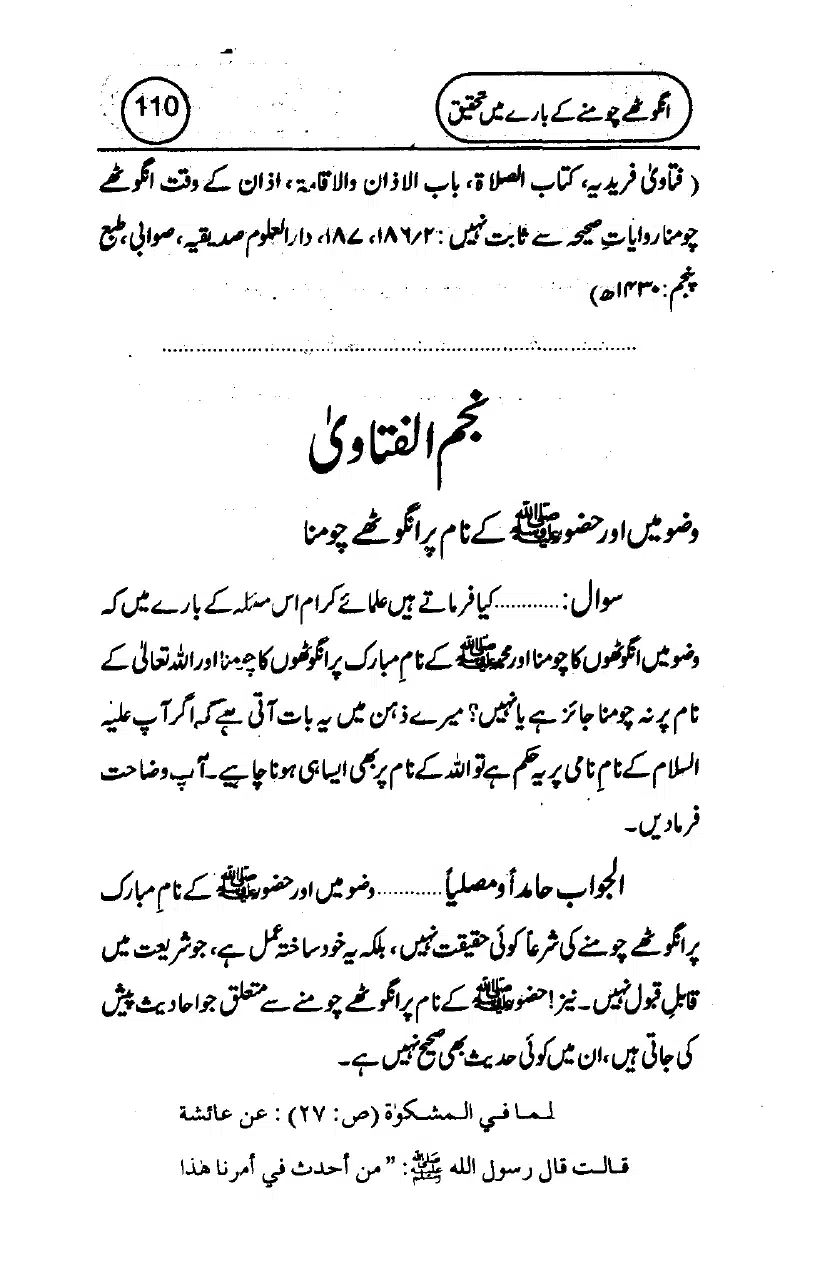 انگوٹھے چومنے کے بارے میں تحقیق
110
( فتاویٰ فریدیہ، کتاب الصلاۃ، باب الاذان والاقامۃ، اذان کے وقت انگوٹھے
چومنا روایاتِ صحیحہ سے ثابت نہیں : ۱۸۶/۲، ۱۸۷، دارالعلوم صدیقیہ، صوابی، طبع
پنجم : ۱۴۳۰ھ)
نجم الفتاویٰ
وضو میں اور حضور ﷺ کے نام پر انگوٹھے چومنا
سوال : ............ کیا فرماتے ہیں علمائے کرام اس مسئلہ کے بارے میں کہ
وضو میں انگوٹھوں کا چومنا اور محمد ﷺ کے نامِ مبارک پر انگوٹھوں کا چومنا اور اللہ تعالیٰ کے
نام پر نہ چومنا جائز ہے یا نہیں؟ میرے ذہن میں یہ بات آتی ہے کہ اگر آپ علیہ
السلام کے نامِ نامی پر یہ حکم ہے تو اللہ کے نام پر بھی ایسا ہی ہونا چاہیے۔ آپ وضاحت
فرمادیں۔
الجواب حامداً ومصلیاً ............ وضو میں اور حضور ﷺ کے نامِ مبارک
پر انگوٹھے چومنے کی شرعاً کوئی حقیقت نہیں، بلکہ یہ خود ساختہ عمل ہے، جو شریعت میں
قابلِ قبول نہیں۔ نیز! حضور ﷺ کے نام پر انگوٹھے چومنے سے متعلق جو احادیث پیش
کی جاتی ہیں، ان میں کوئی حدیث بھی صحیح نہیں ہے۔
لـمـا فـي الـمـشـكـوٰة (ص: ٢٧) : عن عائشة
قـالـت قال رسول الله ﷺ: "من أحدث في أمرنا هذا